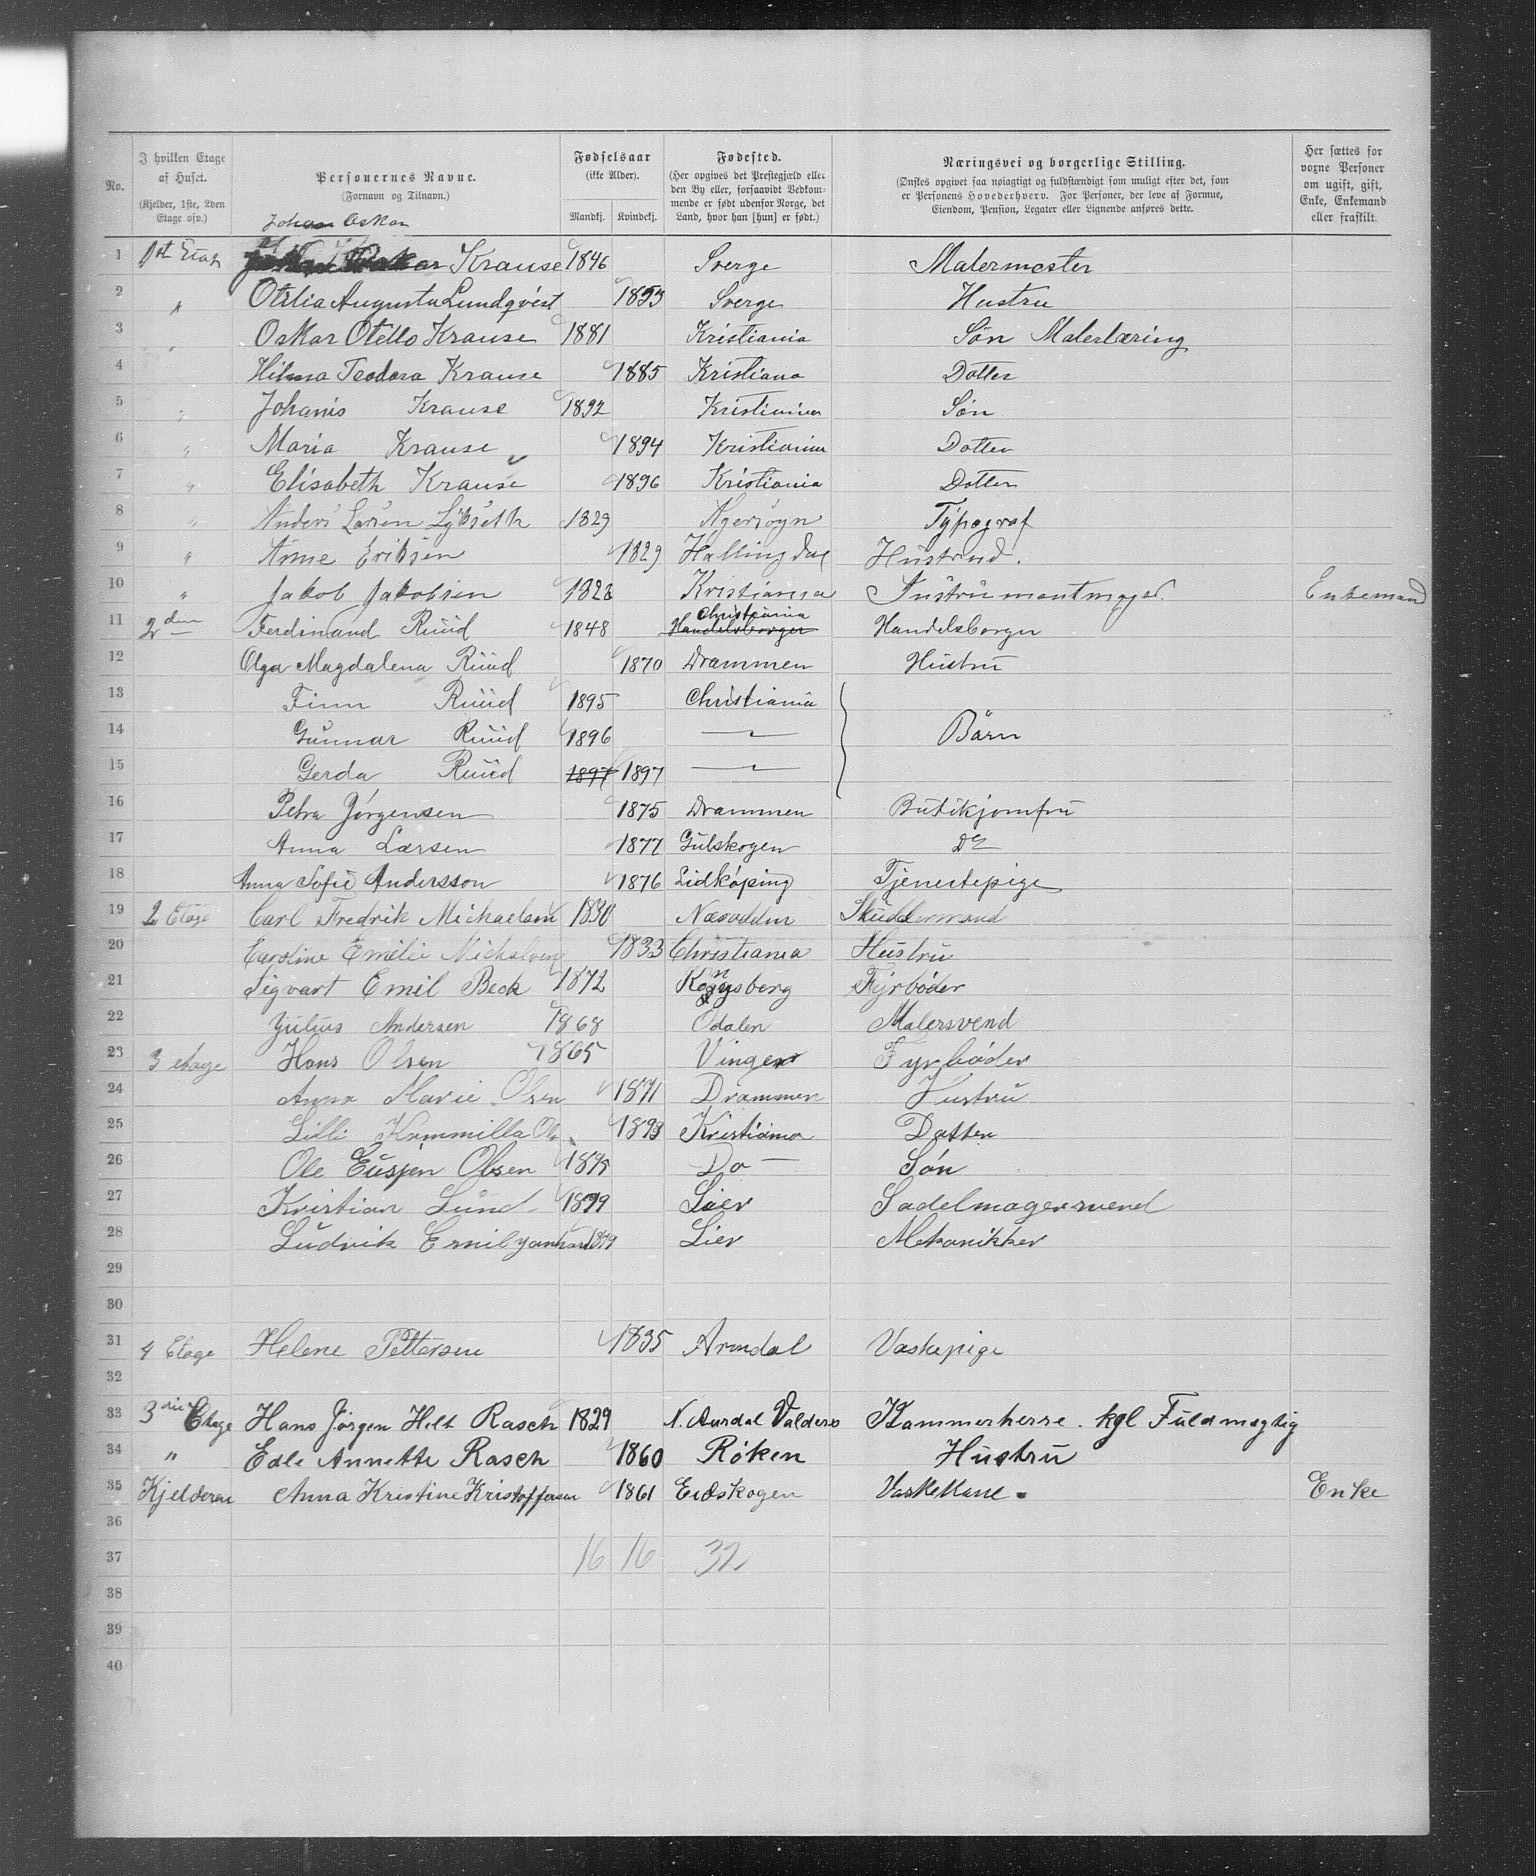 No. | I hvilken Etage af Huset. (Kjelder, 1ste, 2den Etage osv.) | Personernes Navne. (Fornavn og Tilnavn.) | Fødselsaar (ikke Alder). Mandkj. Kvindekj. | Fødested. (Her opgives det Prestegjæld eller den By eller, forsaavidt Vedkommende er født udenfor Norge, det Land, hvor han [hun] er født.) | Næringsvei og borgerlige Stilling. (Ønskes opgivet saa nøiagtigt og fuldstændigt som muligt efter det, som er Personens Hovederhverv. For Personer, der leve af Formue, Eiendom, Pension, Legater eller Lignende anføres dette. | Her sættes for voxne Personer om ugift, gift, Enke, Enkemand eller fraskilt.
Johan Oskar
1 1st Etag Krause 1846 Sverge Malermester
2 " Otilia Augusta Lundqvist 1853 Sverge Hustru
3 " Oskar Otello Krause 1881 Kristiania Søn Malerlæring
4 Hilma Teodora Krause 1885 Kristiana Dotter
5 " Johanis Krause 1892 Kristiania Søn
6 " Maria Krause 1894 Kristiania Dotter
7 " Elisabeth Krause 1896 Kristiania Dotter
8 " Anders Larsen Lykseth 1829 Agersogn Typograf
9 " Anne Eriksen 1829 Hallingdal Hustrud.
10 " Jakob Jakobsen Kristiania Instrumentmager Enkemand
11 2den Ferdinand Ruud 1848 Handelsborger Christiania Handelsborger
12 Olga Magdalena Ruud 1870 Drammen Hustru
13 Finn Ruud 1895 Christiania
14 Gunnar Ruud 1896 —"— Børn
15 Gerda Ruud 1897 1897 —"—
16 Petra Jørgensen 1875 Drammen Butikjomfru
17 Anna Larsen 1877 Gulskogen Do
18 Anna Sofie Andersson 1876 Lidköping Tjenestepige
19 2 Etage Carl Fredrik Michaelsen 1830 Næsodden
20 Caroline Emelie 1833 Christiania Hustru
21 Sigvart Emil Beck 1872 Kongsberg Fyrbøder
22 Julius Andersen 1868 Odalen Malersvend
23 3 etage Hans Olsen 1865 Vinger Fyrbøder
24 Anna Marie Olsen 1871 Drammen Hustru
25 Lilli Kammilla Ols 1893 Kristiania Datter
26 Ole Eusjen Olsen 1895 Do — Søn
27 Kristian Lund 1899 Lier Sadelmagersvend
28 Ludvik Emil Lier Mekanikker
29
30
31 4 Etage Helene Pettersen 1835 Arendal Vaskepige
32
33 3die Etage Hans Jørgen Holt Rasch 1829 N. Aurdal Valders Kammerherre. kgl Fuldmægtig
34 " Edle Annette Rasch 1860 Røken Hustru
35 Kjelderen Anna Kristine Kristoffersen 1861 Eidskogen Vaskekone. Enke
36
37 16 16 32
38
39
40